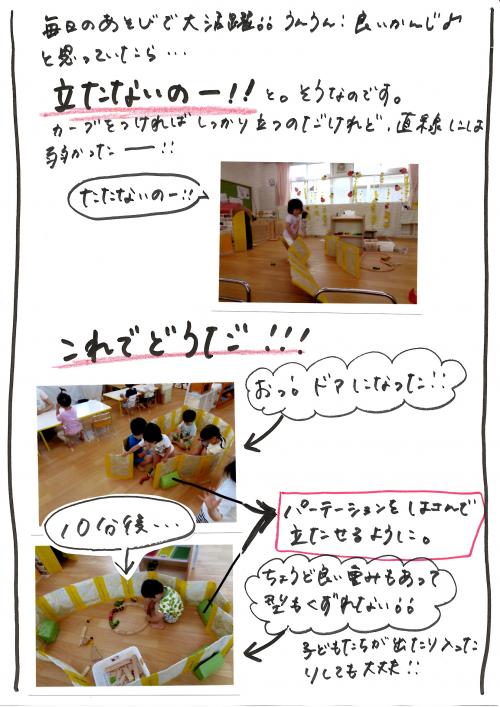 毎日のあそびで大活躍!! うんうん! 良いかんじ♪
と思っていたら・・・
立たないのー!! と。そうなのです。
カーブをつければしっかり立つのだけれど、直線には
弱かったー!!
たたないのー!!
これでどうだ!!!
おっ! ドアになった!!
パーテーションをはさんで
立たせるように。
10分後・・・
ちょうど良い重みもあって
型もくずれない!!
子どもたちが出たり入った
りしても大丈夫!!